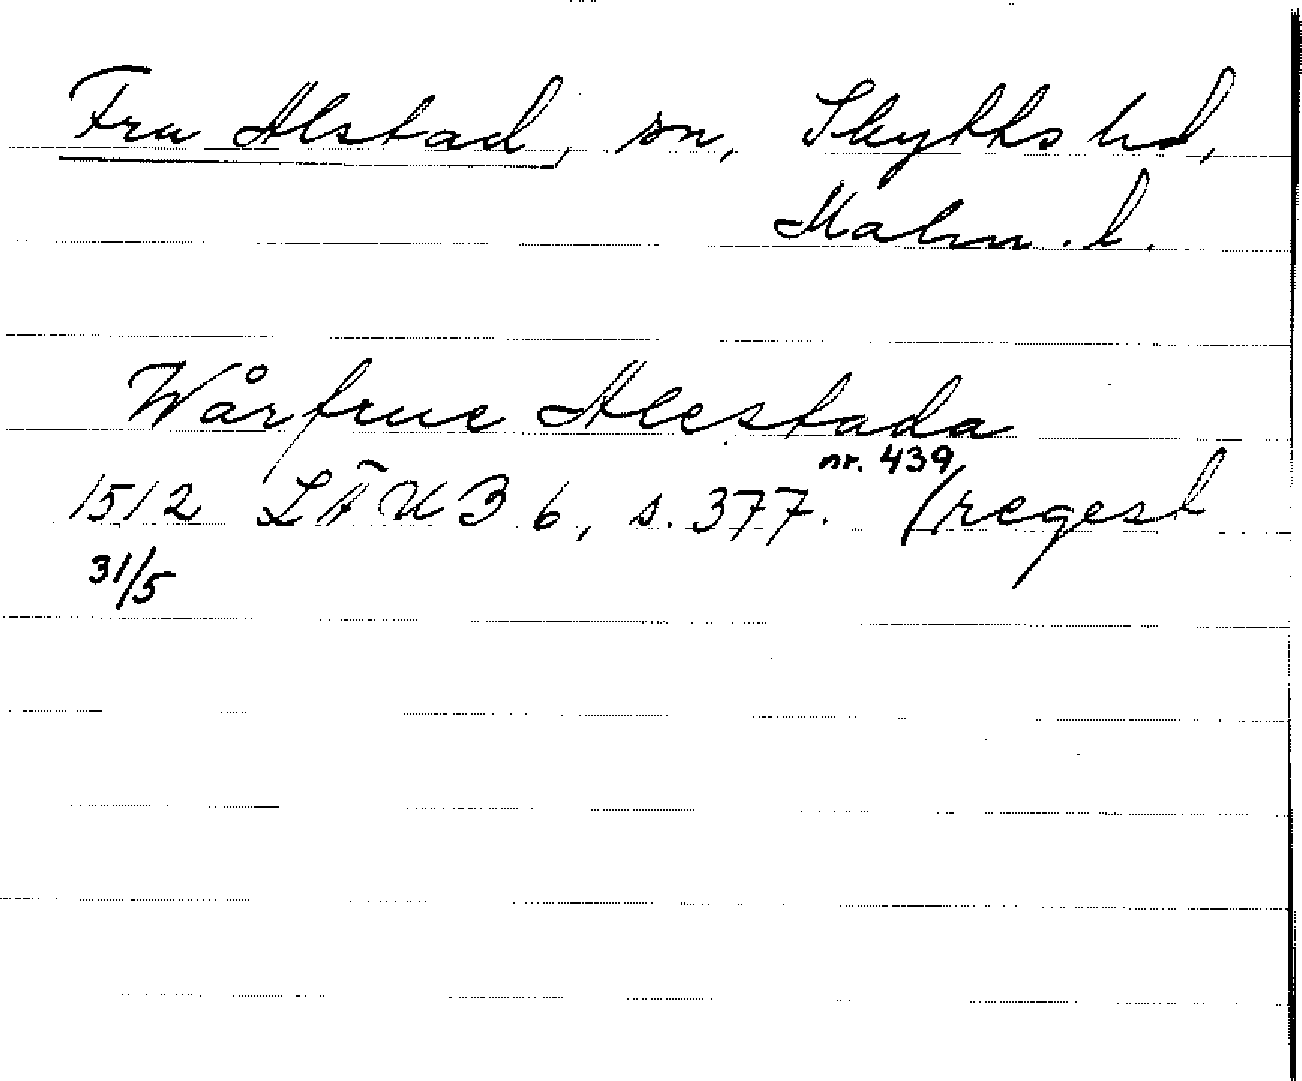 Fru Alstad, sn, Skytts hd,
Malm. l.
Wårfrue Alestada
nr. 439
1512 LÄUB 6, s. 377. (regest
31/5